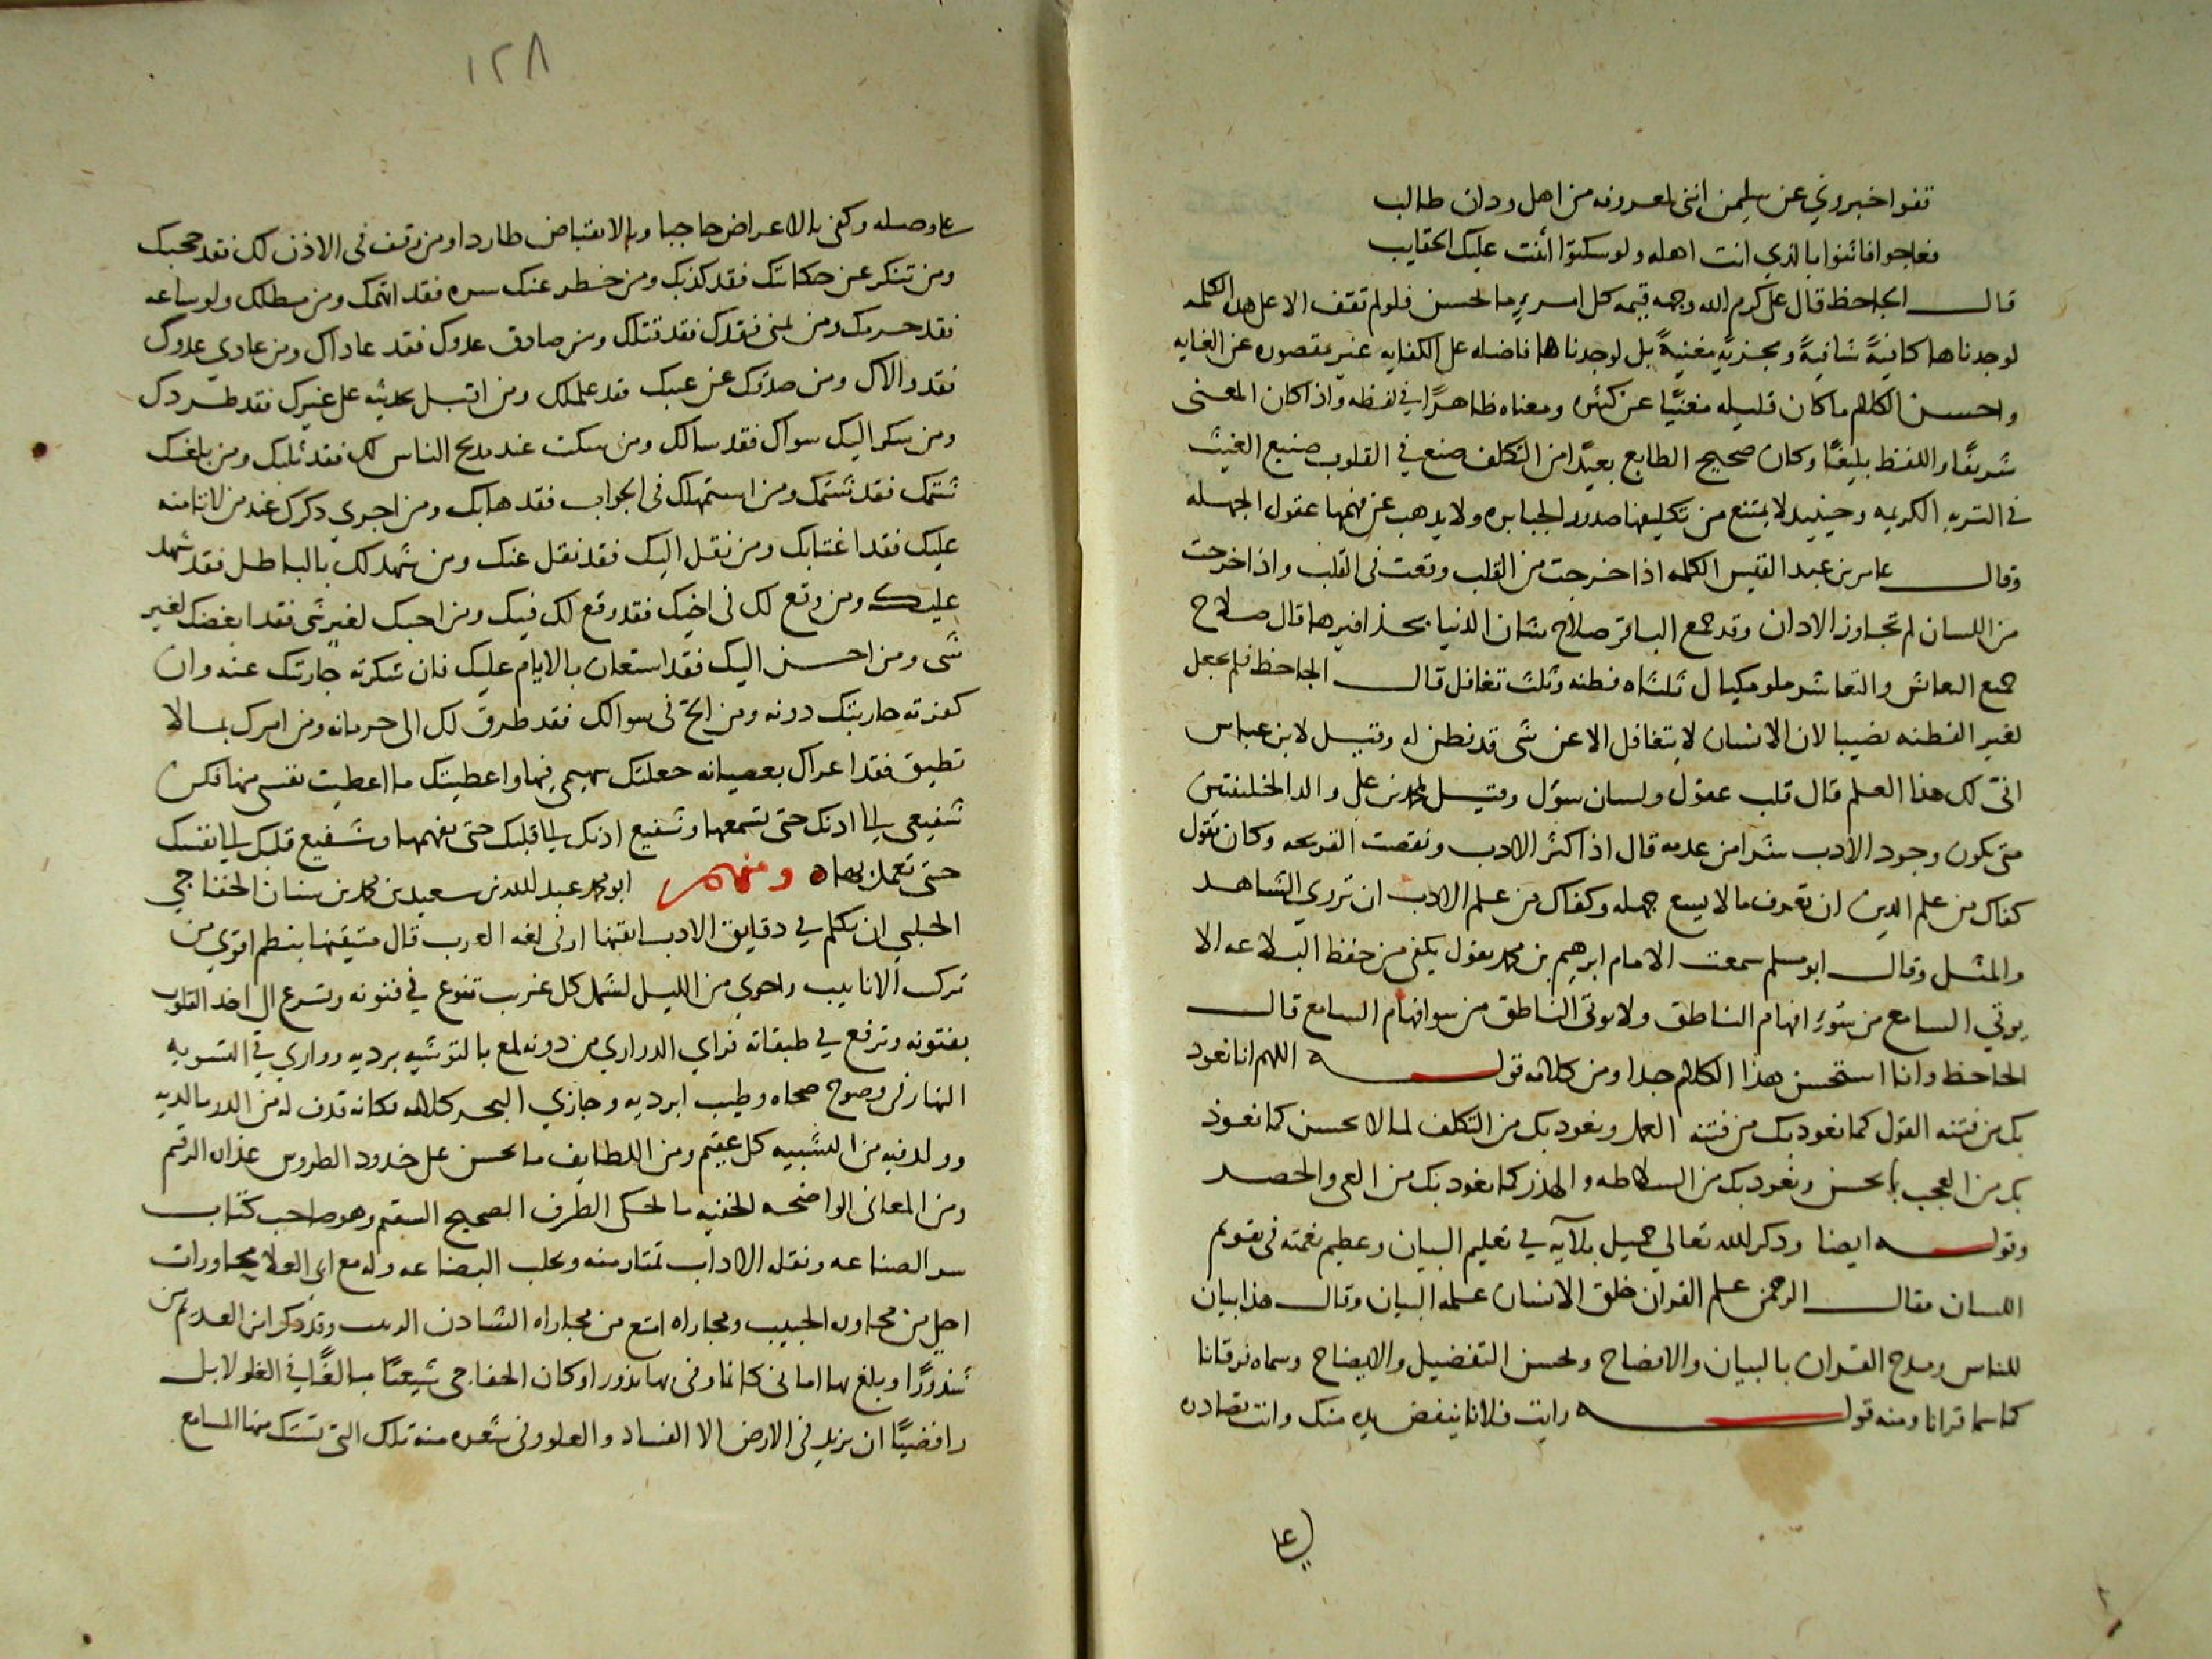 قفوا خبروني عن سليمن انني لمعروفه من اهل ودان طالب
فعاجوا فاثنوا بالذي انت اهله ولو سكتوا اثنت عليك الحقايب
قال الجاحظ قال علي كرم الله وجهه قيمة كل امرىء ما يحسن فلو لم تقف الا على هذه الكلمه
لوجدناها كافيةً شافيةً ومجزيةً مغنيةً بل لوجدناها فاضله على الكفايه غير مقصوره عن الغايه
واحسن الكلام ما كان قليله مغنيًا عن كثيره ومعناه ظاهرًا في لفظه واذا كان المعنى
شريفًا واللفظ بليغًا وكان صحيح الطابع بعيدًا من التكلف صنع في القلوب صنيع الغيث
في التربه الكريمه وحينيذ لا يمتنع من تكليفها صدور الجبابره ولا يذهب عن فهمها عقول الجهله
وقال عامر بن عبد القيس الكلمه اذا خرجت من القلب وقعت في القلب واذا خرجت
من اللسان لم تجاوز الاذان وقد جمع الباقر صلاح شان الدنيا بحذافيرها قال صلاح
جميع التعايش والتعاشر ملو مكيال ثلثاه فطنه وثلث تغافل قال الجاحظ فلم يجعل
لغير الفطنه نصيبا لان الانسان لا يتغافل الا عن شي قد فطن له وقيل لابن عباس
انى لك هذا العلم قال قلب عقول ولسان سؤل وقيل لمحمد بن علي والد الخليفتين
متى يكون وجود الادب شرا من عدمه قال اذا كثر الادب ونقصت القريحه وكان يقول
كفاك من علم الدين ان تعرف ما لا يسع جهله وكفاك من علم الادب ان تروي الشاهد
والمثل وقال ابو مسلم سمعت الامام ابرهيم بن محمد يقول يكفي من حفظ البلاغه الا
يوتي السامع من سوء افهام الناطق ولا يوتى الناطق من سوافهام السامع قال
الجاحظ وانا استحسن هذا الكلام جدا ومن كلامه قوله اللهم انا نعوذ
بك من فتنه القول كما نعوذ بك من فتنه العمل ونعوذ بك من التكلف لما لا نحسن كما نعوذ
بك من العجب بما نحسن ونعوذ بك من السلاطه والهذر كما نعوذ بك من العي والحصر
وقوله ايضا وذكر الله تعالى جميل بلآيه في تعليم البيان وعظيم نعمته في تقويم
اللسان فقال الرحمن علم القران خلق الانسان علمه البيان وقال هذا بيان
للناس ومدح القران بالبيان والافصاح ولحسن التفصيل والايضاح وسماه فرقانا
كما سما قرانا ومنه قوله رايت فلانا ينفض يده منك وانت تصادن
١٢٨
وصله وكفى بالاعراض حاجبا وبالانقباض طاردا ومن توقف في الاذن لك فقد حجبك
ومن تنكر عن حكايتك فقد كذبك ومن خطر عنك سره فقد اتهمك ومن مطلك ولو ساعه
فقد حرمك ومن تمنى فقدك فقد قتلك ومن صادق عدوك فقد عاداك ومن عادي عدوك
فقد والاك ومن صدقك عن عيبك فقد علمك ومن اقبل بحديثه على غيرك فقد طردك
ومن شكر اليك سواك فقد سالك ومن سكت عند مديح الناس لك فقد ثلبك ومن بلغك
شتمك فقد شتمك ومن استمهلك في الجواب فقد هابك ومن اجرى ذكرك عند من لا تامنه
عليك فقد اغتابك ومن نقل اليك فقد نقل عنك ومن شهد لك بالباطل فقد شهد
عليك ومن وقع لك في اخيك فقد وقع لك فيك ومن احبك لغير شي فقد ابغضك لغير
شي ومن احسن اليك فقد استعان بالايام عليك فان شكرته جارتك عنه وان
كفرته حاربتك دونه ومن الح في سوالك فقد طرق لك الى حرمانه ومن امرك بما لا
تطيق فقد اغراك بعصيانه جعلتك سهيمي فيها واعطيتك ما اعطيت نفسي منها فكن
شفيعي الى اذنك حتى تسمعها وشفيع اذنك الى قلبك حتى يفهمها وشفيع قلبك الى نفسك
حتى تعمل بها ومنهم ابو محمد عبد الله بن سعيد بن محمد بن سنان الخفاجي
الحلبي ان تكلم في دقايق الادب اتقنها او في لغه العرب قال متيقنها بنظم اقوى من
تركب الانابيب واحوي من الليل لشمل كل غريب تنوع في فنونه وتسرع الى اخذ القلوب
بفتونه وترفع في طبقاته فراي الدراري من دونه لمع بالتوشيه برديه وواري في التسويه
النهار في وضوح ضحاه وطيب ابرديه وجازي البحر كلامه فكانه قذف له من الدر ما لديه
وولد فيه من التشبيه كل عقيم ومن اللطايف ما يحسن على خدود الطروس عذار الرقم
ومن المعاني الواضحه الخفيه ما يحكي الطرف الصحيح السقيم وهو صاحب كتاب
سر الصناعه ونقله الاداب تمتار منه ويجلب البضاعه وله مع ابي العلا محاورات
احلى من محاوره الحبيب ومجاراه امتع من مجاراه الشادن الربيب وقد ذكر ابن العديم من
شذورًا وبلغ بها اماني كانما وفى بها نذورا وكان الخفاجي شيعيًا مبالغًا في الغلو لا بل
رافضيًا ان يريد في الارض الا الفساد والعلو وفي شعره منه تلك التي تستك منها المسامع